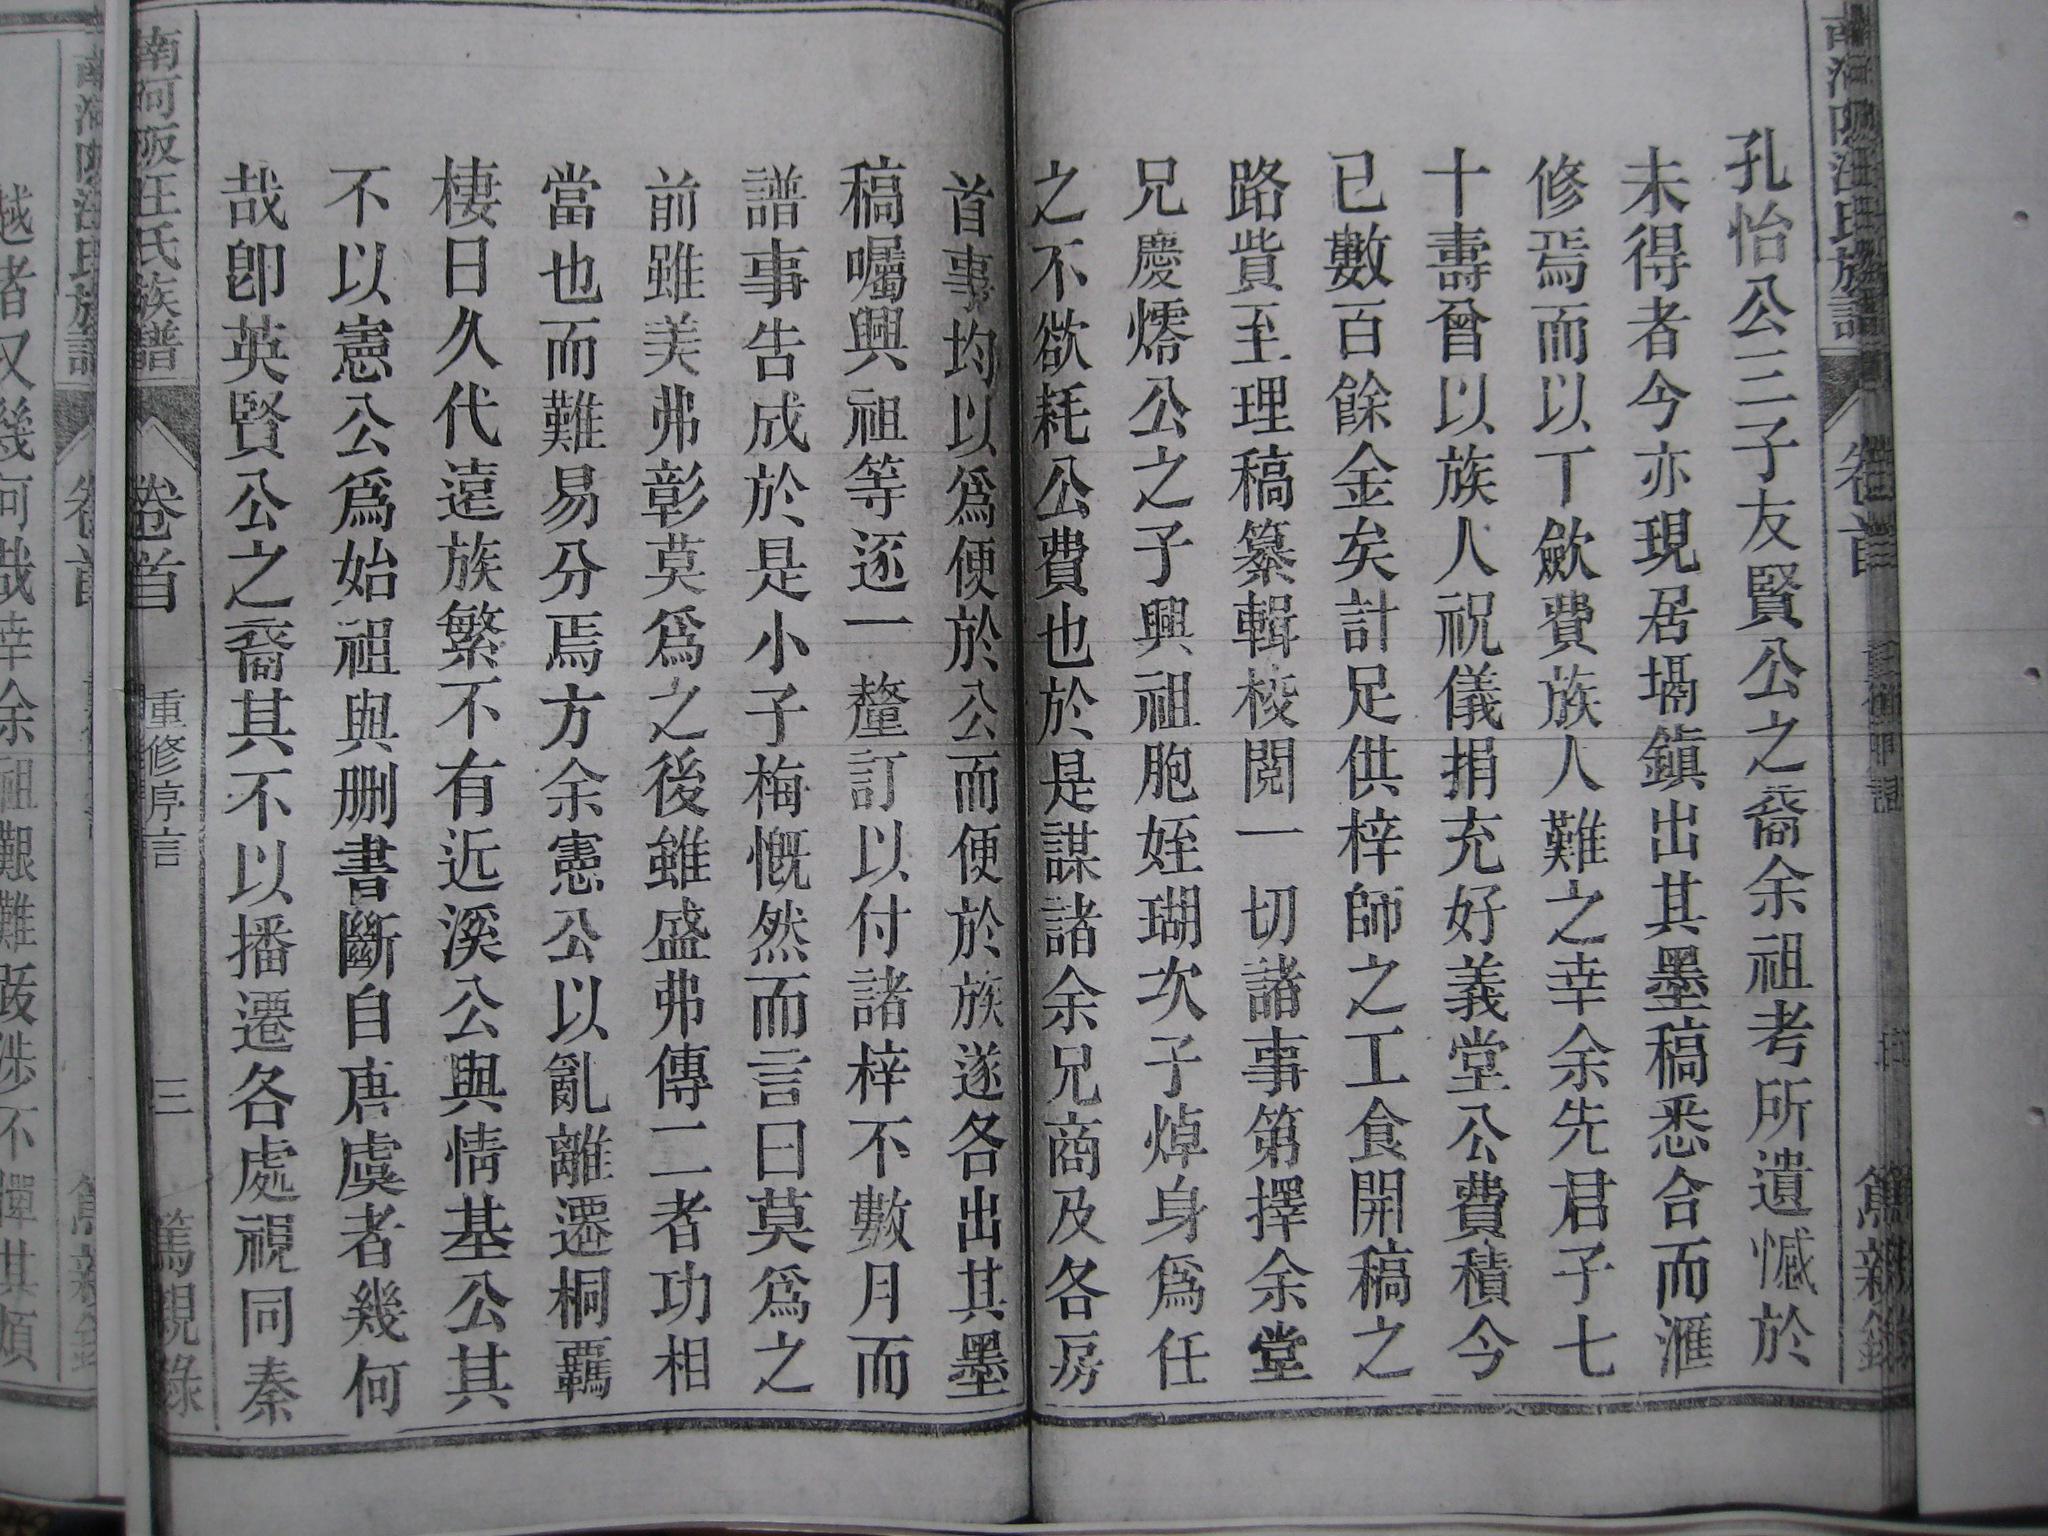 孔怡公三子友賢公之裔余祖考所遺憾於
未得者今亦現居塥鎮出其墨稿悉合而滙
修焉而以丁歛費族人難之幸余先君子七
十壽曾以族人祝儀捐充好義堂公費積今
已數百餘金矣計足供梓師之工食開稿之
路貲至理稿纂輯校閱一切諸事第擇余堂
兄慶澪公之子興祖胞姪瑚次子焯身為任
之不欲耗公費也於是謀諸余兄商及各房
首事均以為便於公而便於族遂各出其墨
稿囑興祖等逐一釐訂以付諸梓不數月而
譜事告成於是小子梅慨然而言曰莫為之
前雖美弗彰莫為之後雖盛弗傳二者功相
當也而難易分焉方余憲公以亂離遷桐覊
棲日久代遠族繁不有近溪公與情基公其
不以憲公為始祖與刪書斷自唐虞者幾何
哉卽英賢公之裔其不以播遷各處視同秦
南河阪汪氏族譜
卷首
重修序言
三
篤親錄
越者又幾何哉幸余祖艱難跋涉不憚其煩